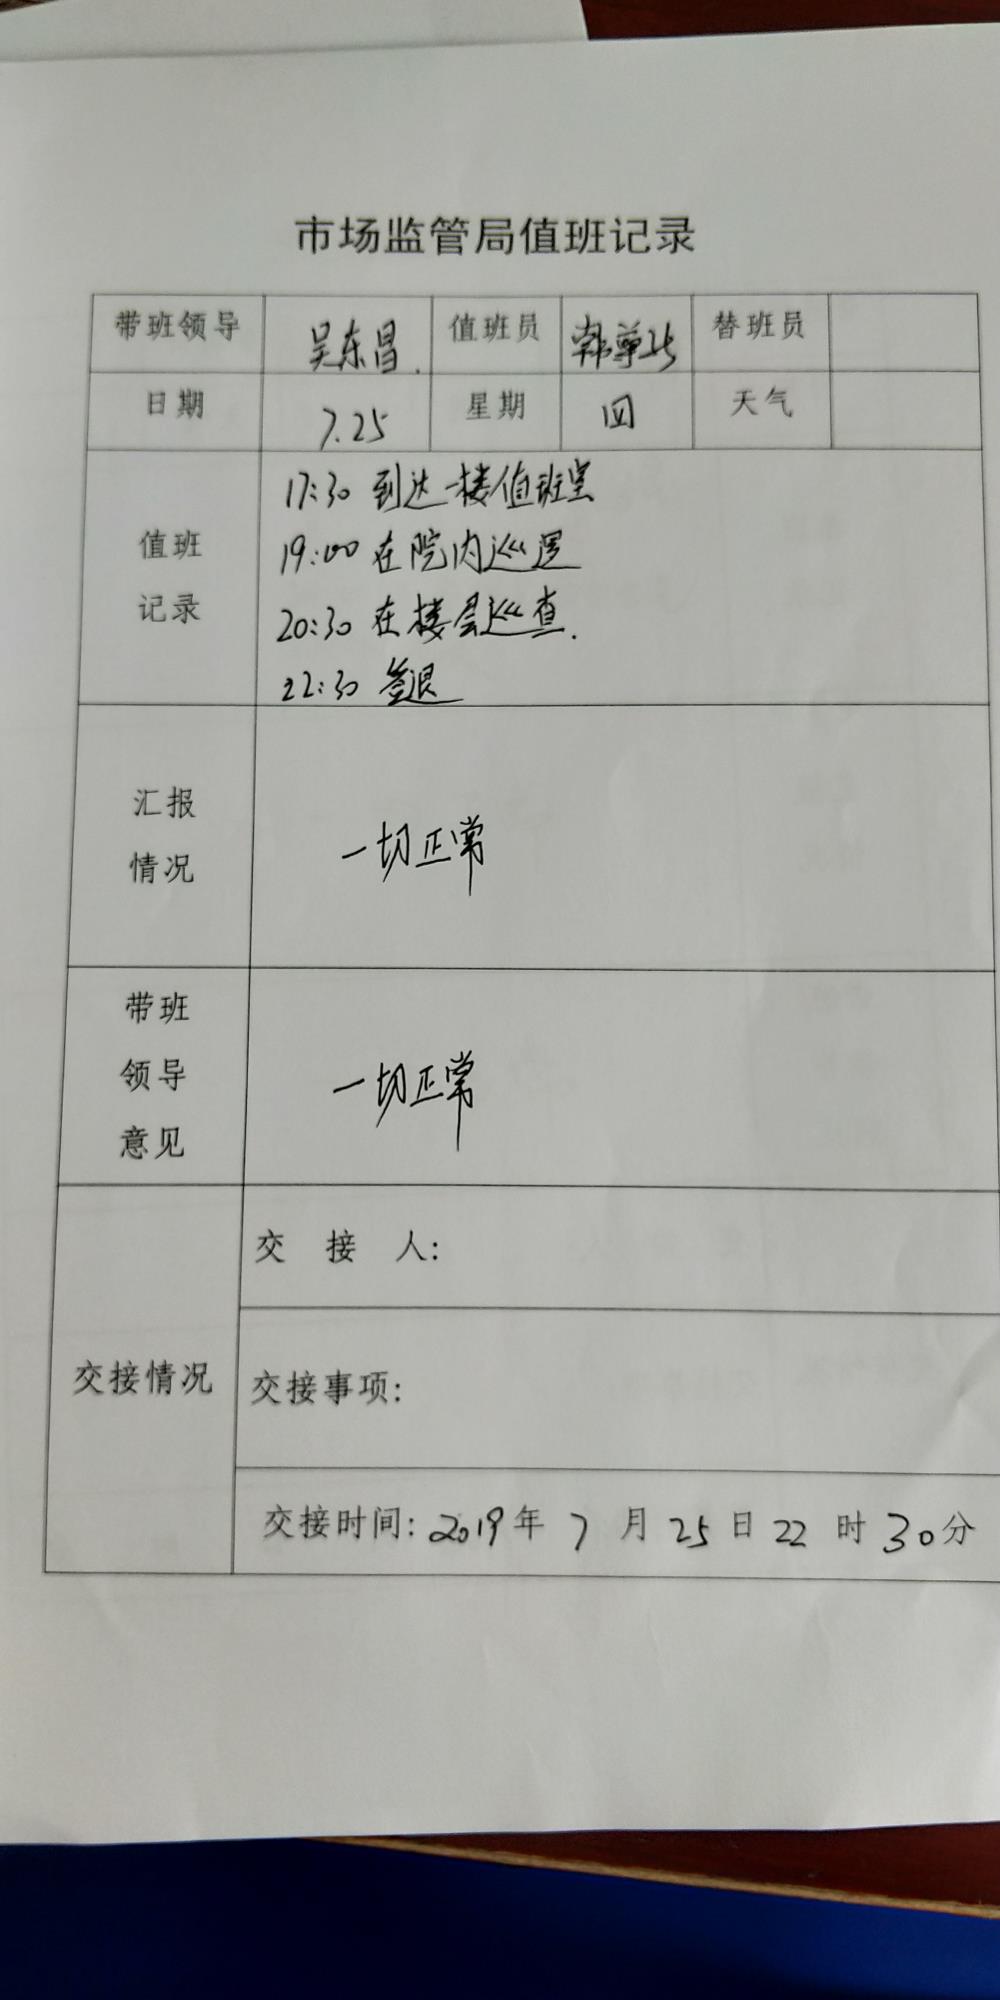 市场监管局值班记录
带班领导 吴东昌. 值班员 替班员
日期 7.25 星期 四 天气
值班
记录
17:30 到达一楼值班室
19:00 在院内巡逻
20:30 在楼层巡查.
22:30 签退
汇报
情况
一切正常
带班
领导
意见
一切正常
交接情况
交 接 人:
交接事项:
交接时间: 2019年 7 月 25 日 22 时 30 分